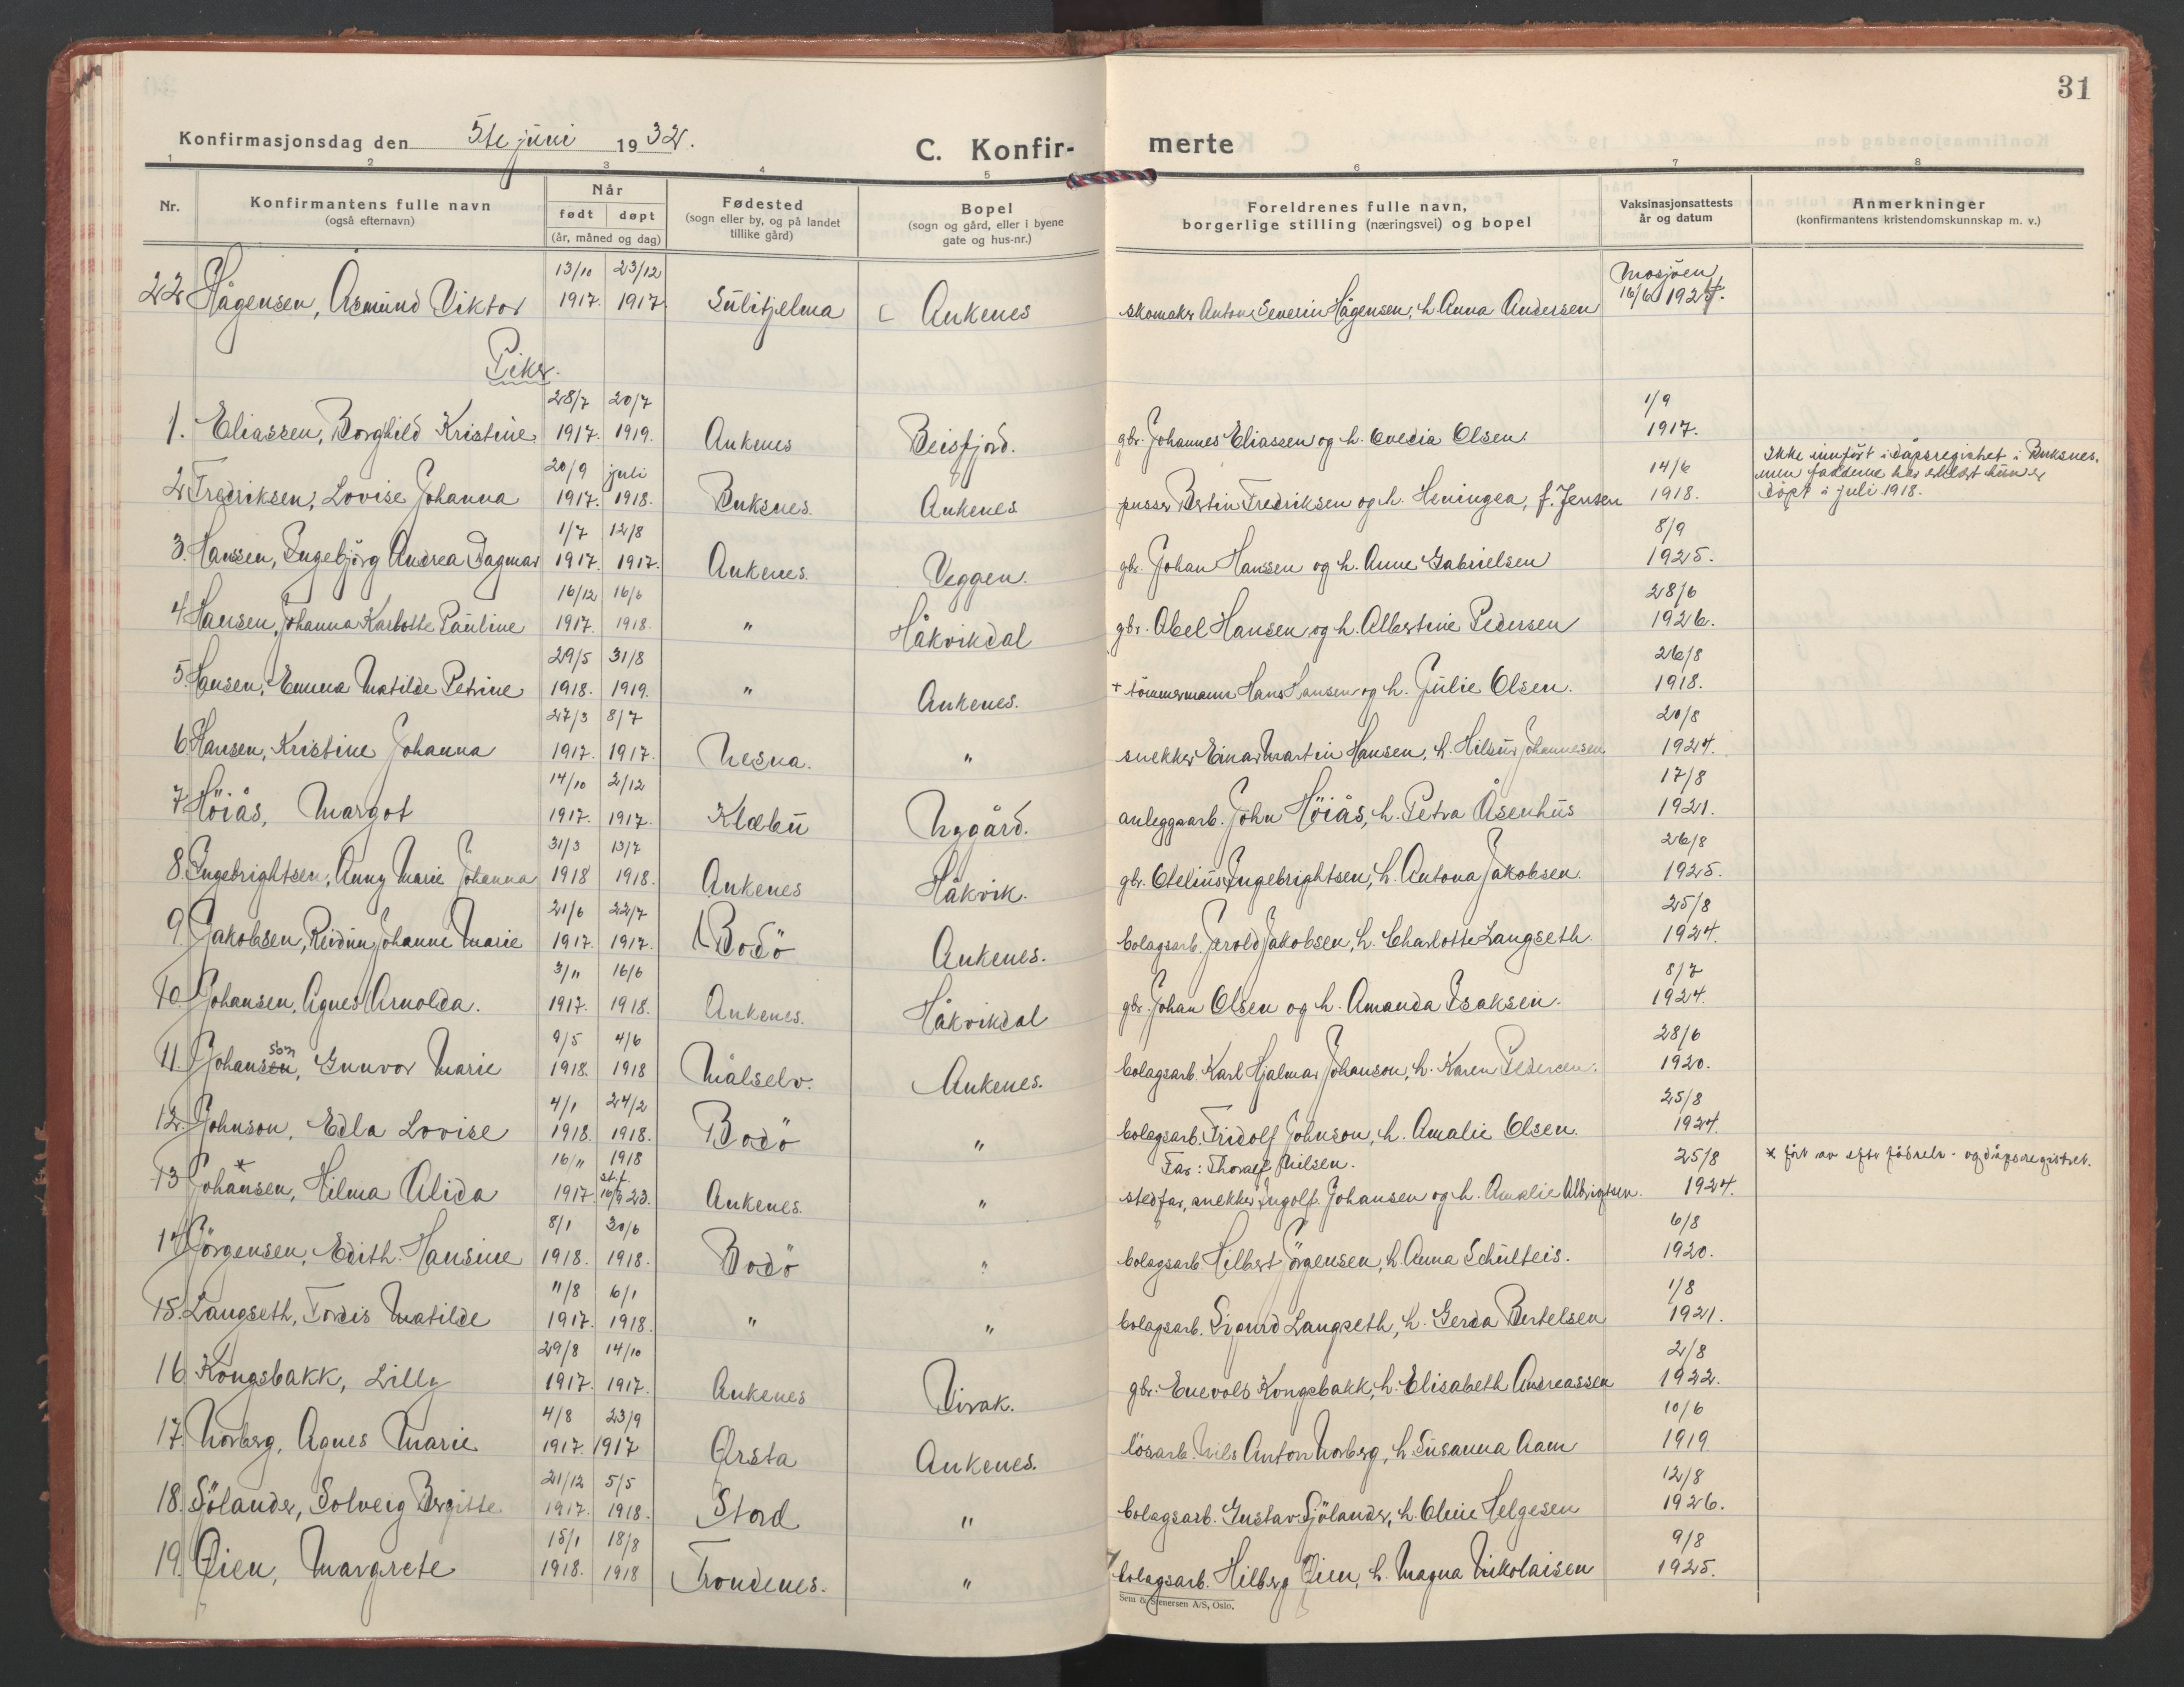 31
Konfirmasjonsdag den 5te juni 1932.
C. Konfirmerte
1 2 3 4 5 6 7 8
Nr. Konfirmantens fulle navn (også efternavn) Når født døpt (år, måned og dag) Fødested (sogn eller by, og på landet tillike gård) Bopel (sogn og gård, eller i byene gate og hus-nr.) Foreldrenes fulle navn, borgerlige stilling (næringsvei) og bopel Vaksinasjonsattests år og datum Anmerkninger (konfirmantens kristendomskunnskap m. v.)
22 Hågensen, Asmund Viktor 13/10 1917. 23/12 1917 Sulitjelma Ankenes skomaker Anton Severin Hågensen, h. Anna Andersen Mosjøen 16/6 1924.
Piker.
1. Eliassen, Borghild Kristine 28/7 1917. 20/7 1919. Ankenes Beisfjord. gbr. Johannes Eliassen og h. Ovedia Olsen. 1/9 1917.
2. Fredriksen, Lovise Johanna 20/9 1917. juli 1918. Buksnes. Ankenes pusser Bertin Fredriksen og h. Heningea, f. Jensen 14/6 1918. Ikke innført i dåpsregistret i Buksnes, men fadderne har erklært hun er döpt i juli 1918.
3. Hansen, Ingebjörg Andrea Dagmar 1/7 1917. 12/8 1917. Ankenes. Veggen. gbr. Johan Hansen og h. Anne Gabrielsen 8/9 1925.
4 Hansen, Johanna Karlotte Pauline 16/12 1917. 16/6 1918. " Håkvikdal gbr. Abel Hansen og h. Albertine Pedersen 28/6 1926.
5. Hansen, Emma Matilde Petrine 29/5 1918. 31/8 1919. " Ankenes. + tömmermann Hans Hansen og h. Julie Olsen. 26/8 1918.
6 Hansen, Kristine Johanna 27/3 1917. 8/7 1917. Nesna. " snekker Einar Martin Hansen, h. Hilsur Johannesen 20/8 1924.
7 Höiås, Margot 14/10 1917. 2/12 1917. Klæbu Nygård. anleggsarb. John Höiås, h. Petra Åsenhus 17/8 1921.
8. Ingebrightsen, Anny Marie Johanna 31/3 1918 13/7 1918. Ankenes Håkvik. gbr. Otelius Ingebrightsen, h. Antona Jakobsen. 26/8 1925.
9. Jakobsen, Reidun Johanne Marie 21/6 1917. 22/7 1917. Bodö Ankenes. bolagsarb. Jerold Jakobsen, h. Charlotte Langseth. 25/8 1924.
10. Johansen, Agnes Arnolda. 3/11 1917. 16/6 1918. Ankenes. Håkvikdal gbr. Johan Olsen og h. Amanda Isaksen. 8/7 1924.
11. Johanson, Gunvor Marie 9/5 1918. 4/6 1918 Målselv. Ankenes. bolagsarb. Karl Hjalmar Johanson, h. Karen Pedersen. 28/6 1920.
12. Johnson, Edla Lovise 4/1 1918. 24/2 1918. Bodö " bolagsarb. Fridolf Johnson, h. Amalie Olsen. 25/8 1924.
13 Johansen*, Hilma Alida 16/11 1917 1918 st.f. 16/9 23. Ankenes. " Far: Thoralf Nilsen. stedfar, snekker Ingolf Johansen og h. Amalie Albrigtsen. 25/8 1924. * ført av efter fødsels- og dåpsregistret.
14 Jörgensen, Edith Hansine 8/1 1918. 30/6 1918. Bodö " bolagsarb Hilbert Jörgensen, h. Anna Schulteis. 6/8 1920.
15. Langseth, Tordis Matilde 11/8 1917. 6/1 1918. " " bolagsarb. Sigurd Langseth, h. Gerda Bertelsen 1/8 1921.
16 Kongsbakk, Lilly 29/8 1917. 14/10 1917. Ankenes Virak. gbr. Enevold Kongsbakk, h. Elisabeth Andreassen 2/8 1922.
17. Norberg, Agnes Marie 4/8 1917. 23/9 1917 Ørsta Ankenes. lösarb. Nils Anton Norberg, h. Susanna Aam 10/6 1919
18. Sjölander, Solveig Bergitte 21/12 1917. 5/5 1918. Stord " bolagsarb. Gustav Sjölander, h. Oline Helgesen 12/8 1926.
19. Øien, Margrete 15/1 1918. 18/8 1918 Trondenes. " bolagsarb. Hilberg Øien, h. Magna Nikolaisen 9/8 1925.
Sem & Stenersen A/S, Oslo.